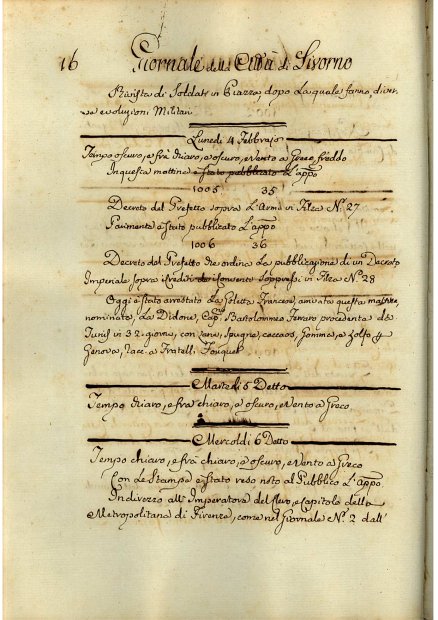 16 Giornale della Città di Livorno
Rivista di Soldati in Piazza, dopo La quale fanno, diver
se evoluzioni Militari
Lunedi 4 Febbrajo
Tempo oscuro, e frà chiaro, e oscuro, e Vento a Greco, freddo
In questa mattina è stato pubblicato L'appo
1005 35
Decreto del Prefetto sopra L'Armi in Filza Nº 27
Parimente è stato pubblicato L'appo
1006 36
Decreto del Prefetto che ordina La pubblicazione di un Decreto
Imperiale sopra i Conventi soppressi in Filza Nº 28
Oggi è stato La Goletta Francese, questa mattina,
nominata, La Didone, Capº Bartolommeo Ferraro procedente da
Tunis in 32 giorni, con Spugne, Gomma, e Zolfo p
Genova, racc: a Fratelli
Martedi 5 Detto
Tempo chiaro, e frà chiaro, e oscuro, e Vento a Greco
Mercoldi 6 Detto
Tempo chiaro, e frà chiaro, e oscuro, e Vento a Greco
Con Le Stampe è stato reso noto al Pubblico L'appo
Indirizzo all' Imperatore del e Capitolo della
Metropolitana di Firenze, come nel Giornale Nº 2 dall'